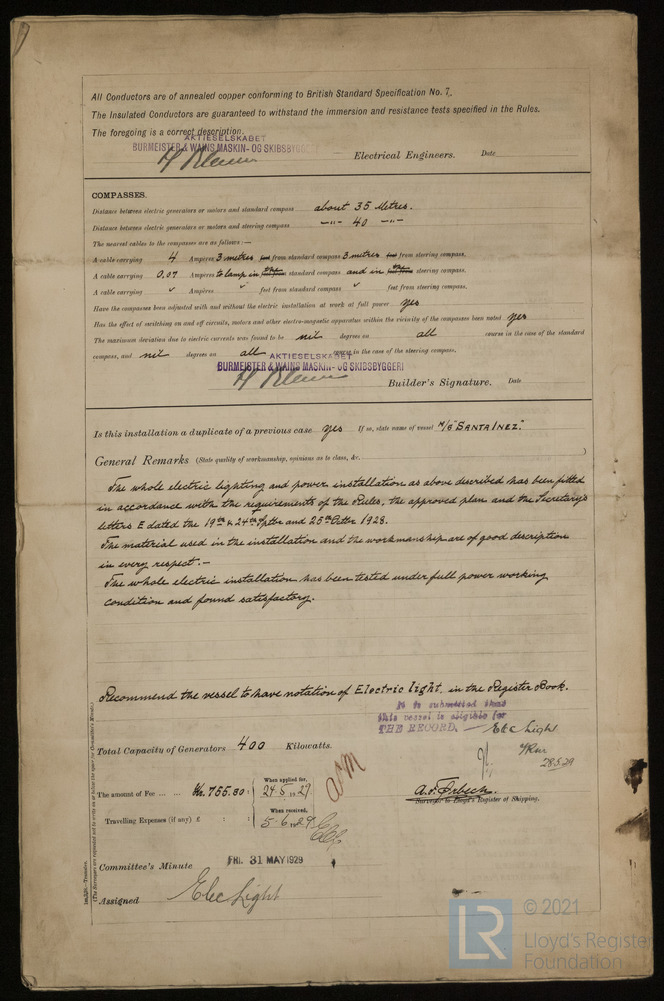 All Conductors are of annealed copper conforming to British Standard Specification No. 7.
The Insulated Conductors are guaranteed to withstand the immersion and resistance tests specified in the Rules.
The foregoing is a correct description.
AKTIESELSKABET
BURMEISTER & WAINS MASKIN- OG SKIBSBYGGERI
Electrical Engineers. Date
COMPASSES.
Distance between electric generators or motors and standard compass about 35 Metres.
Distance between electric generators or motors and steering compass —"— 40 —"—
The nearest cables to the compasses are as follows:—
A cable carrying 4 Ampères 3 metres feet from standard compass 3 metres feet from steering compass.
A cable carrying 0,07 Ampères to lamp in the standard compass and in the steering compass.
A cable carrying ✓ Ampères ✓ feet from standard compass ✓ feet from steering compass.
Have the compasses been adjusted with and without the electric installation at work at full power yes
Has the effect of switching on and off circuits, motors and other electro-magnetic apparatus within the vicinity of the compasses been noted yes
The maximum deviation due to electric currents was found to be nil degrees on all course in the case of the standard
compass, and nil degrees on all course in the case of the steering compass.
AKTIESELSKABET
BURMEISTER & WAINS MASKIN- OG SKIBSBYGGERI
Builder's Signature. Date
Is this installation a duplicate of a previous case yes If so, state name of vessel M/S "SANTA INEZ."
General Remarks (State quality of workmanship, opinions as to class, &c.
The whole electric lighting and power installation as above described has been fitted
in accordance with the requirements of the Rules, the approved plan and the Secretary's
letters E dated the 19th & 24th Sptbr and 25th Octbr 1928.
The material used in the installation and the workmanship are of good description
in every respect.—
The whole electric installation has been tested under full power working
condition and found satisfactory.
Recommend the vessel to have notation of Electric light in the Register Book.
It is submitted that
this vessel is eligible for
THE RECORD. — Elec Light
28.5.29
Total Capacity of Generators 400 Kilowatts.
The amount of Fee ... ... Kr. 755.80: When applied for, 24-5 1927
Travelling Expenses (if any) £ : : When received, 5-6 1929
Surveyor to Lloyd's Register of Shipping.
Committee's Minute FRI. 31 MAY 1929
Assigned Elec Light
(The Surveyors are requested not to write on or below the space for Committee's Minute.)
LR
© 2021
Lloyd's Register
Foundation